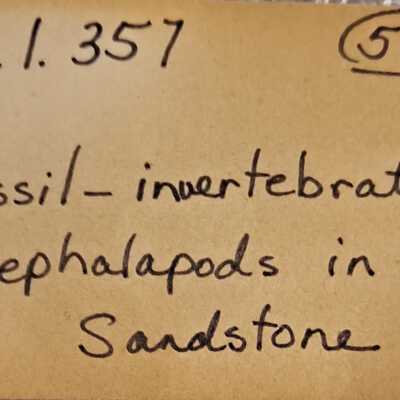 .1.357 (5
ssil - invertebrat
ephalapods in
Sandstone